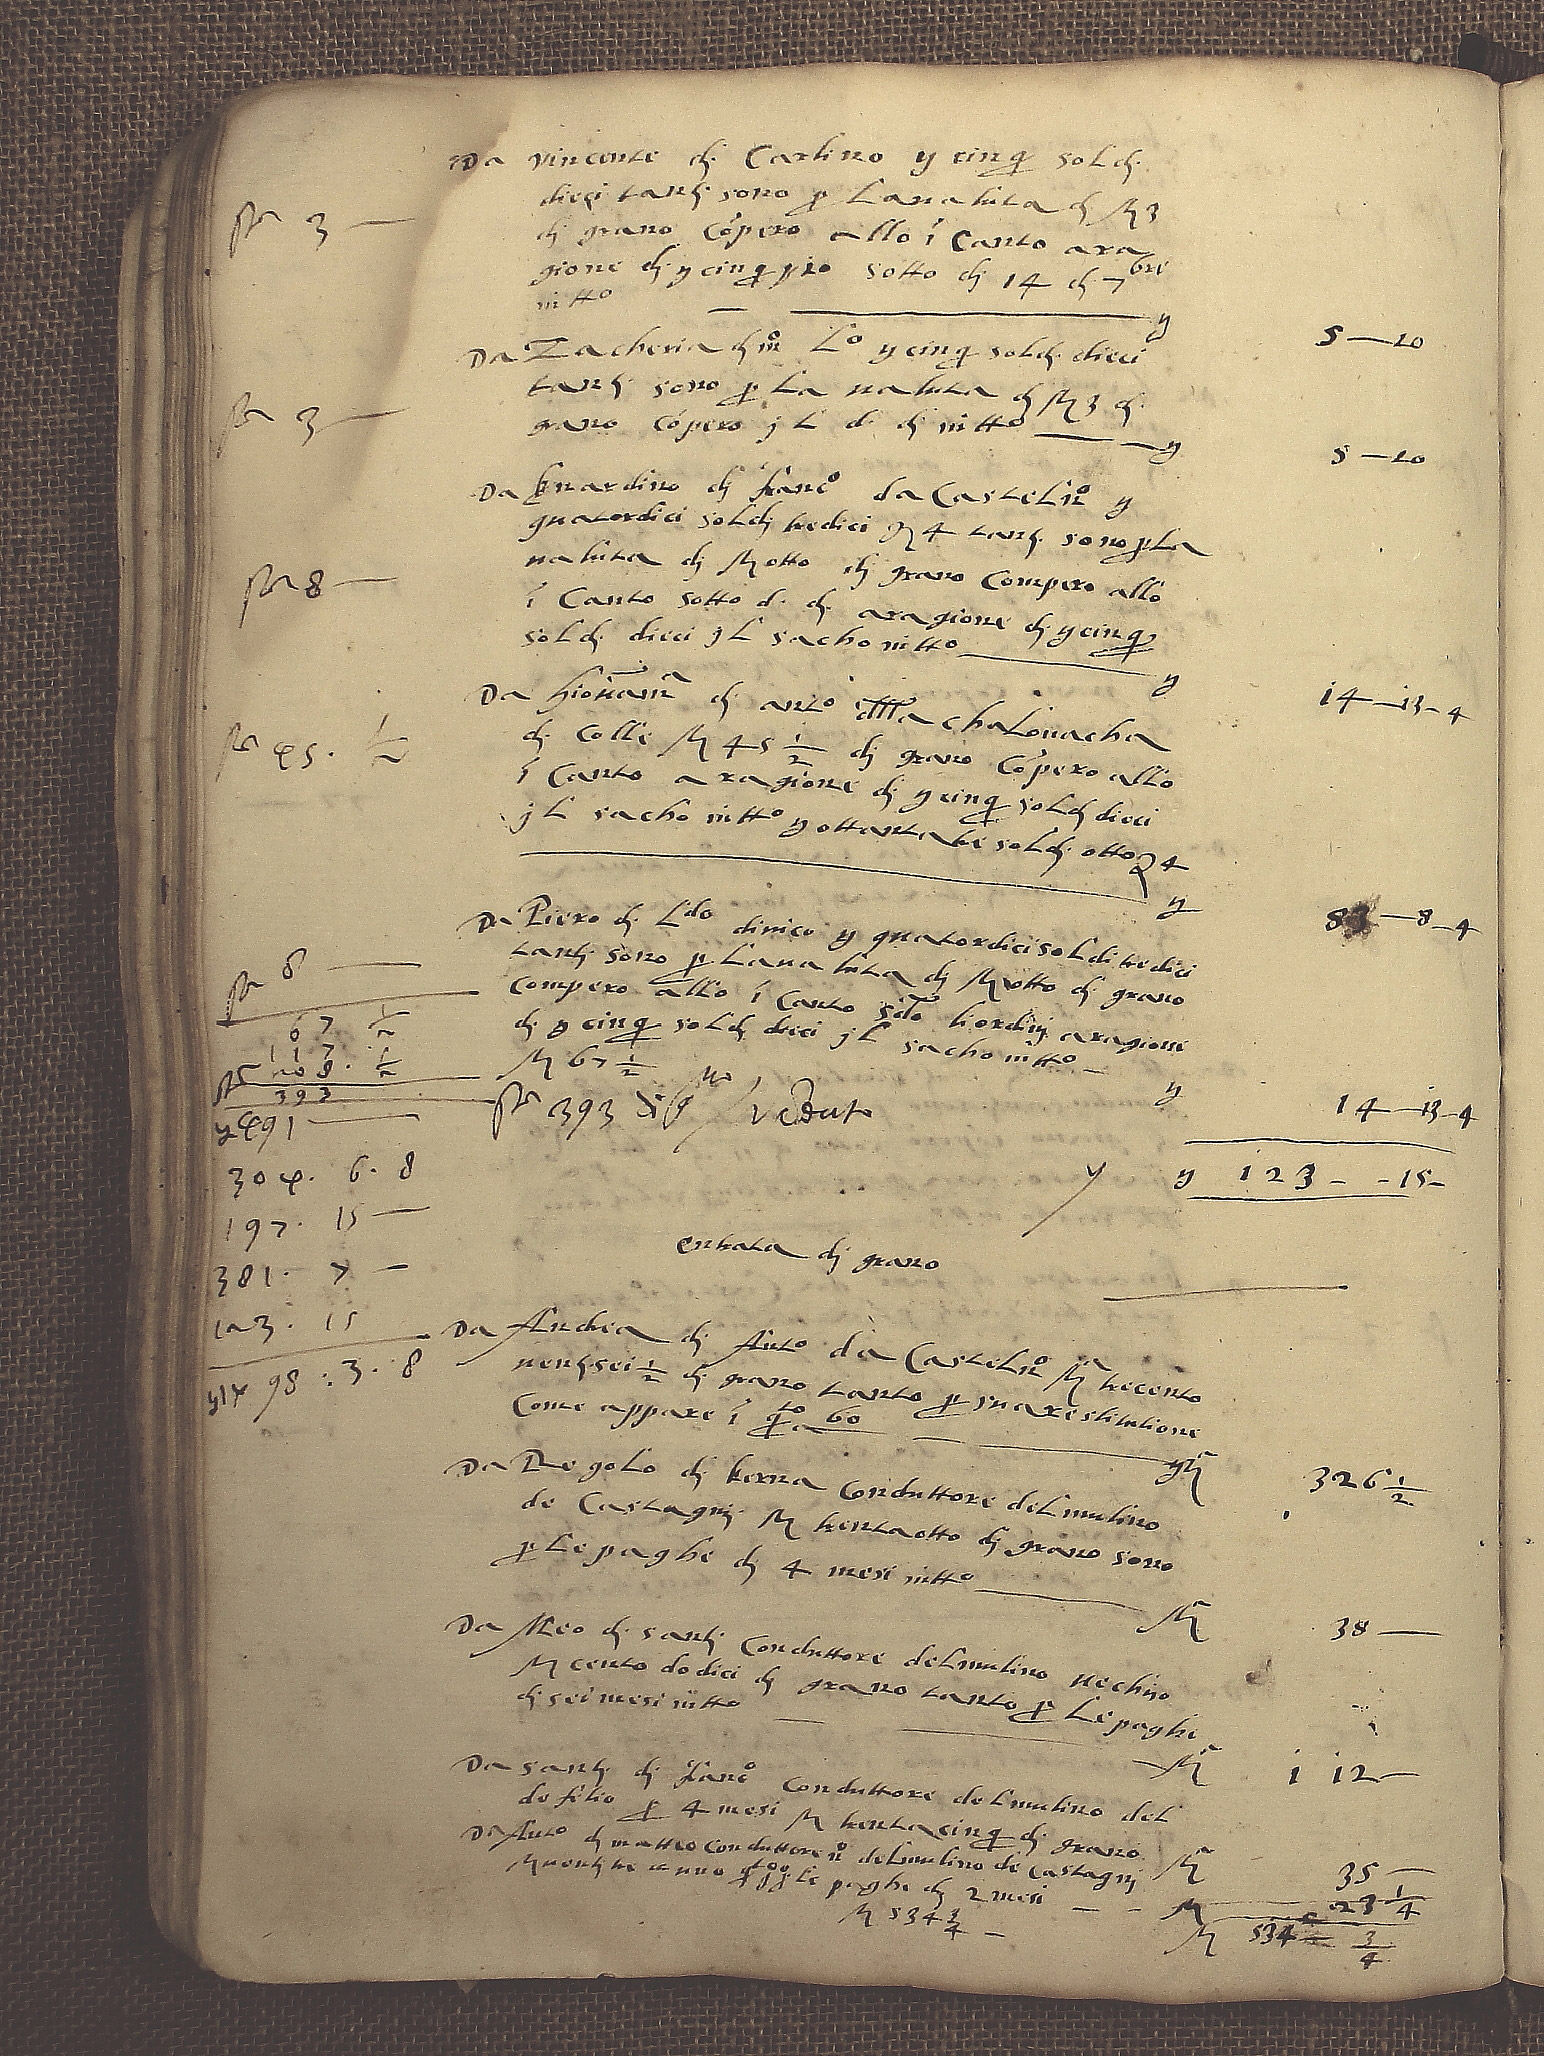 Da Vincente dj Carlino y cinq soldj
diecj tantj sono p la valuta dj st 3
dj grano cōpero allo ī canto ara
gione dj y cinq p jro sotto dj 14 dj 7bre
nitto y 5—10
st 3 —
Da Zacheria dj mo Lo y cinq soldj dieci
tantj sono p la valuta dj st 3 dj
grano cōpero jl d. dj nitto y 5—10
st 3 —
Da bnardino dj franco da Castelno y
quatordici soldj tredici 4 tantj sono p la
valuta dj st otto dj grano compero allo
ī canto sotto d. dj aragione dj y cinq
soldj dieci jl sacho nitto y 14—13—4
st 8 —
Da Giovanna dj anto chalonacha
dj Colle st 45 1/2 dj grano cōpero allo
ī canto aragione dj y cinq soldj dieci
jl sacho nitto y ottantatre soldj otto 4
y 83—8—4
st 45. 1/2
Da Piero dj Ldo dinico y quatordici soldi tredici
tantj sono p la valuta dj st otto dj grano
compero allo ī canto sdo liordinj aragione
dj y cinq soldj dieci jl sacho nitto
st 67 1/2 y 14—13—4
st 8 —
67 1/2
117
208. 1/2
st 393
st 393
y 123 - - 15-
y 491 —
304. 6. 8
197. 15 —
381. 7 —
123. 15
y 1498 : 3. 8
entrata dj grano
Da Andrea dj Anto da Castelno st trecento
ventjsei 1/2 dj grano tanto p sua restitutione
come appare ī qto a 60 st 326 1/2
Da Regolo dj berna conduttore del mulino
de Castagnj st trentaotto dj grano sono
p le paghe dj 4 mesi nitto st 38 —
Da Meo dj santj conduttore del mulino vechio
st cento dodici dj grano tanto p le paghe
dj sei mesi nitto st 112 —
Da santj dj franco conduttore del mulino del
defitio p 4 mesi st trentacinq dj grano st 35 —
Da Anto dj matteo conduttore del mulino de Castagnj
st ventjtre le paghe dj 2 mesi st 23 1/4
st 534 3/4 — st 534 3/4